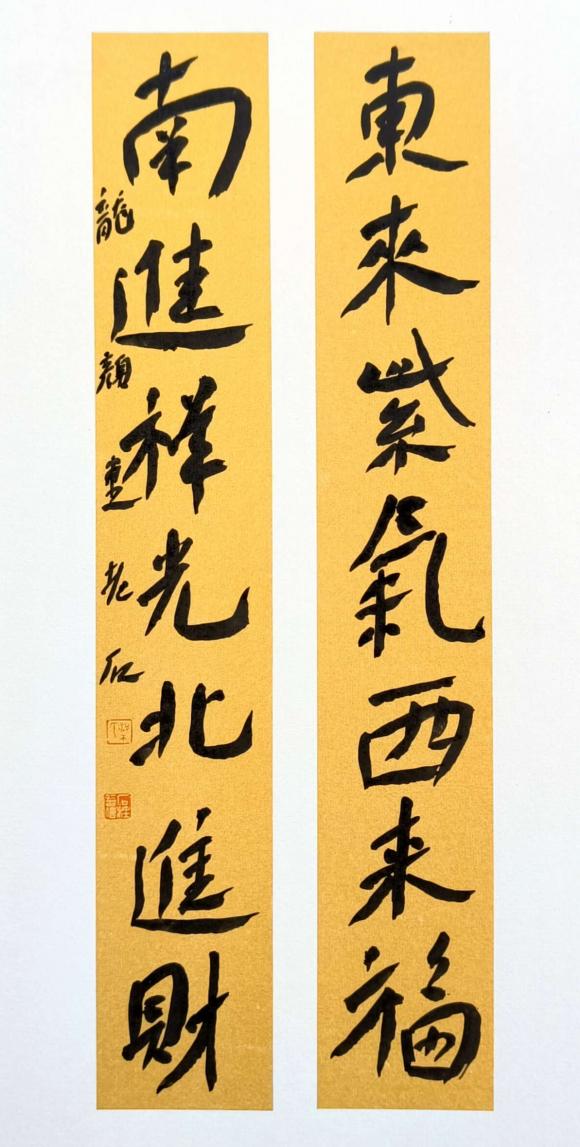 東來紫氣西来福
南進祥光北進財
龍顏堂老石